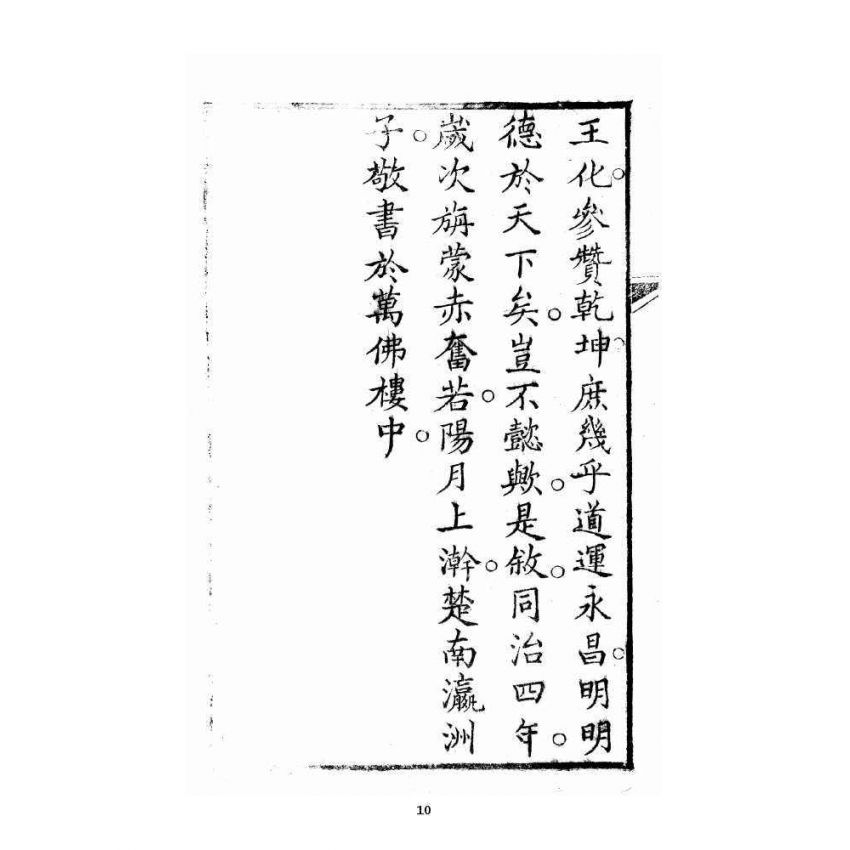 王化。參贊乾坤。庶幾乎道運永昌。明明
德於天下矣。豈不懿歟。是敘。同治四年。
歲次旃蒙赤奮若。陽月上澣。楚南瀛洲
子。敬書於萬佛樓中。
10